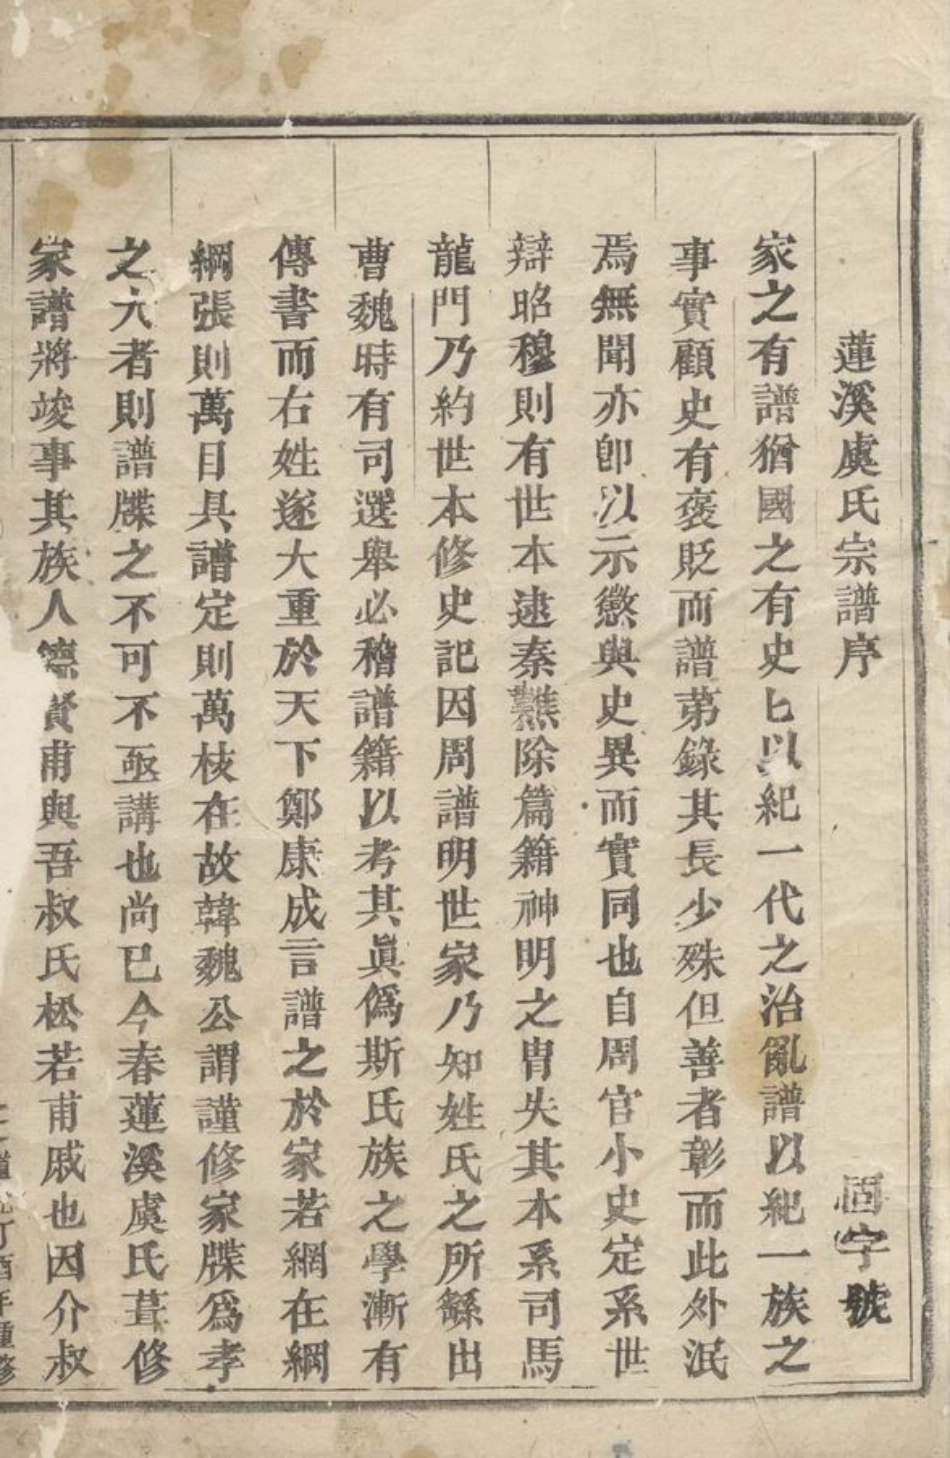 蓮溪虞氏宗譜序 固字號
家之有譜猶國之有史匕以紀一代之治亂譜以紀一族之
事實顧史有褒貶而譜苐錄其長少殊但善者彰而此外泯
焉無聞亦卽以示懲與史異而實同也自周官小史定系世
辯昭穆則有世本逮秦爇除篇籍神明之胄失其本系司馬
龍門乃約世本修史記因周譜明世家乃知姓氏之所繇出
曹魏時有司選舉必稽譜籍以考其眞僞斯氏族之學漸有
傳書而右姓遂大重於天下鄭康成言譜之於家若網在綱
綱張則萬目具譜定則萬枝在故韓魏公謂謹修家牒爲孝
之大者則譜牒之不可不亟講也尚已今春蓮溪虞氏葺修
家譜將竣事其族人德賢甫與吾叔氏松若甫戚也因介叔
道光丁酉年重修